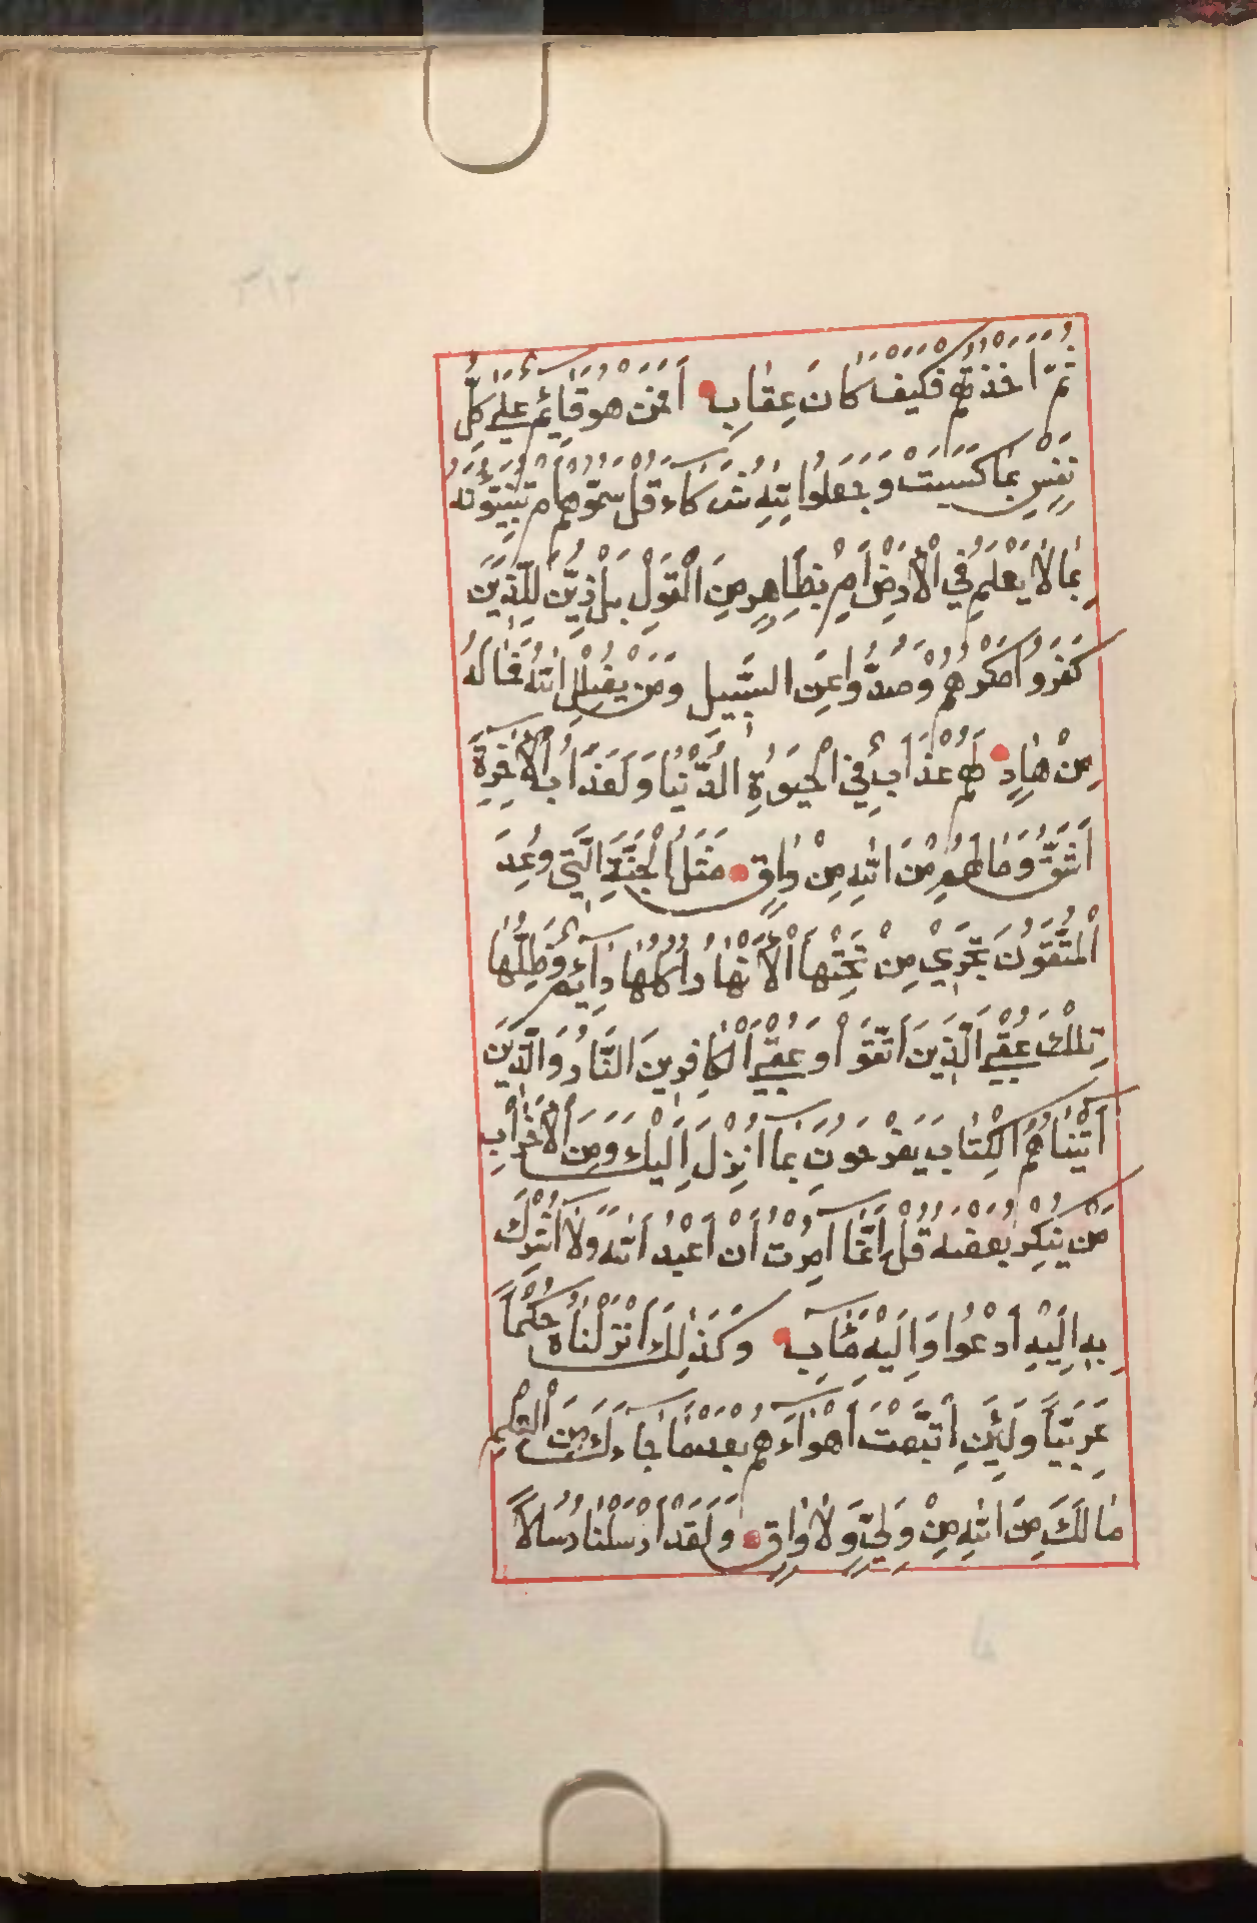 ثُمَّ اَخَذْتُهُمْ فَكَيْفَ كَانَ عِقَابِ اَفَمَنْ هُوَ قَائِمٌ عَلٰى كُلِّ
نَفْسٍ بِمَا كَسَبَتْ وَجَعَلُوا لِلّٰهِ شُرَكَاءَ قُلْ سَمُّوهُمْ اَمْ تُنَبِّئُونَهُ
بِمَا لَا يَعْلَمُ فِي الْاَرْضِ اَمْ بِظَاهِرٍ مِنَ الْقَوْلِ بَلْ زُيِّنَ لِلَّذِينَ
كَفَرُوا مَكْرُهُمْ وَصُدُّوا عَنِ السَّبِيلِ وَمَنْ يُضْلِلِ اللّٰهُ فَمَا لَهُ
مِنْ هَادٍ لَهُمْ عَذَابٌ فِي الْحَيٰوةِ الدُّنْيَا وَلَعَذَابُ الْاٰخِرَةِ
اَشَقُّ وَمَا لَهُمْ مِنَ اللّٰهِ مِنْ وَاقٍ مَثَلُ الْجَنَّةِ الَّتِي وُعِدَ
الْمُتَّقُونَ تَجْرِي مِنْ تَحْتِهَا الْاَنْهَارُ اُكُلُهَا دَائِمٌ وَظِلُّهَا
تِلْكَ عُقْبَى الَّذِينَ اتَّقَوْا وَعُقْبَى الْكَافِرِينَ النَّارُ وَالَّذِينَ
اٰتَيْنَاهُمُ الْكِتَابَ يَفْرَحُونَ بِمَا اُنْزِلَ اِلَيْكَ وَمِنَ الْاَحْزَابِ
مَنْ يُنْكِرُ بَعْضَهُ قُلْ اِنَّمَا اُمِرْتُ اَنْ اَعْبُدَ اللّٰهَ وَلَا اُشْرِكَ
بِهِ اِلَيْهِ اَدْعُوا وَاِلَيْهِ مَاٰبِ وَكَذٰلِكَ اَنْزَلْنَاهُ حُكْمًا
عَرَبِيًّا وَلَئِنِ اتَّبَعْتَ اَهْوَاءَهُمْ بَعْدَمَا جَاءَكَ مِنَ الْعِلْمِ
مَا لَكَ مِنَ اللّٰهِ مِنْ وَلِيٍّ وَلَا وَاقٍ وَلَقَدْ اَرْسَلْنَا رُسُلًا